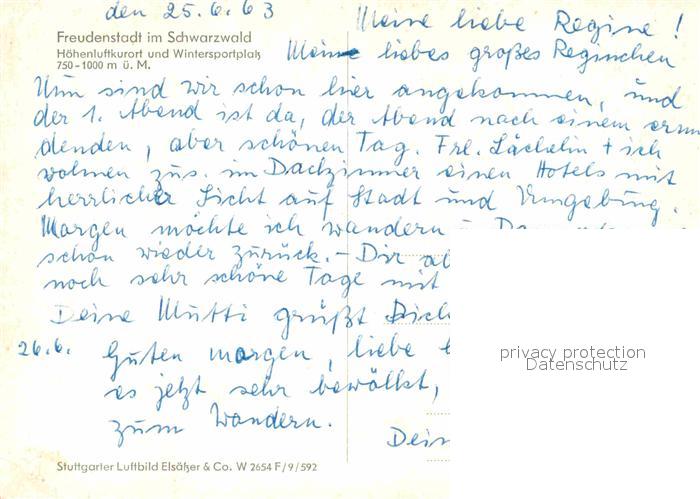 den 25.6.63
Meine liebe Regine!
Freudenstadt im Schwarzwald
Höhenluftkurort und Wintersportplatz
750-1000 m ü. M.
Meine liebes großes Reginchen
Nun sind wir schon hier angekommen, und
der 1. Abend ist da, der Abend nach einem ermü
denden, aber schönen Tag. Frl. Lächelin + ich
wohnen zus. im Dachzimmer eines Hotels mit
herrlicher Sicht auf Stadt und Umgebung.
Morgen möchte ich wandern
schon wieder zurück. - Dir
noch sehr schöne Tage mit
Deine Mutti grüßt Dich
26.6. Guten morgen, liebe
es jetzt sehr bewölkt,
zum Wandern.
Dein
privacy protection
Datenschutz
Stuttgarter Luftbild Elsäßer & Co. W 2654 F/9/592